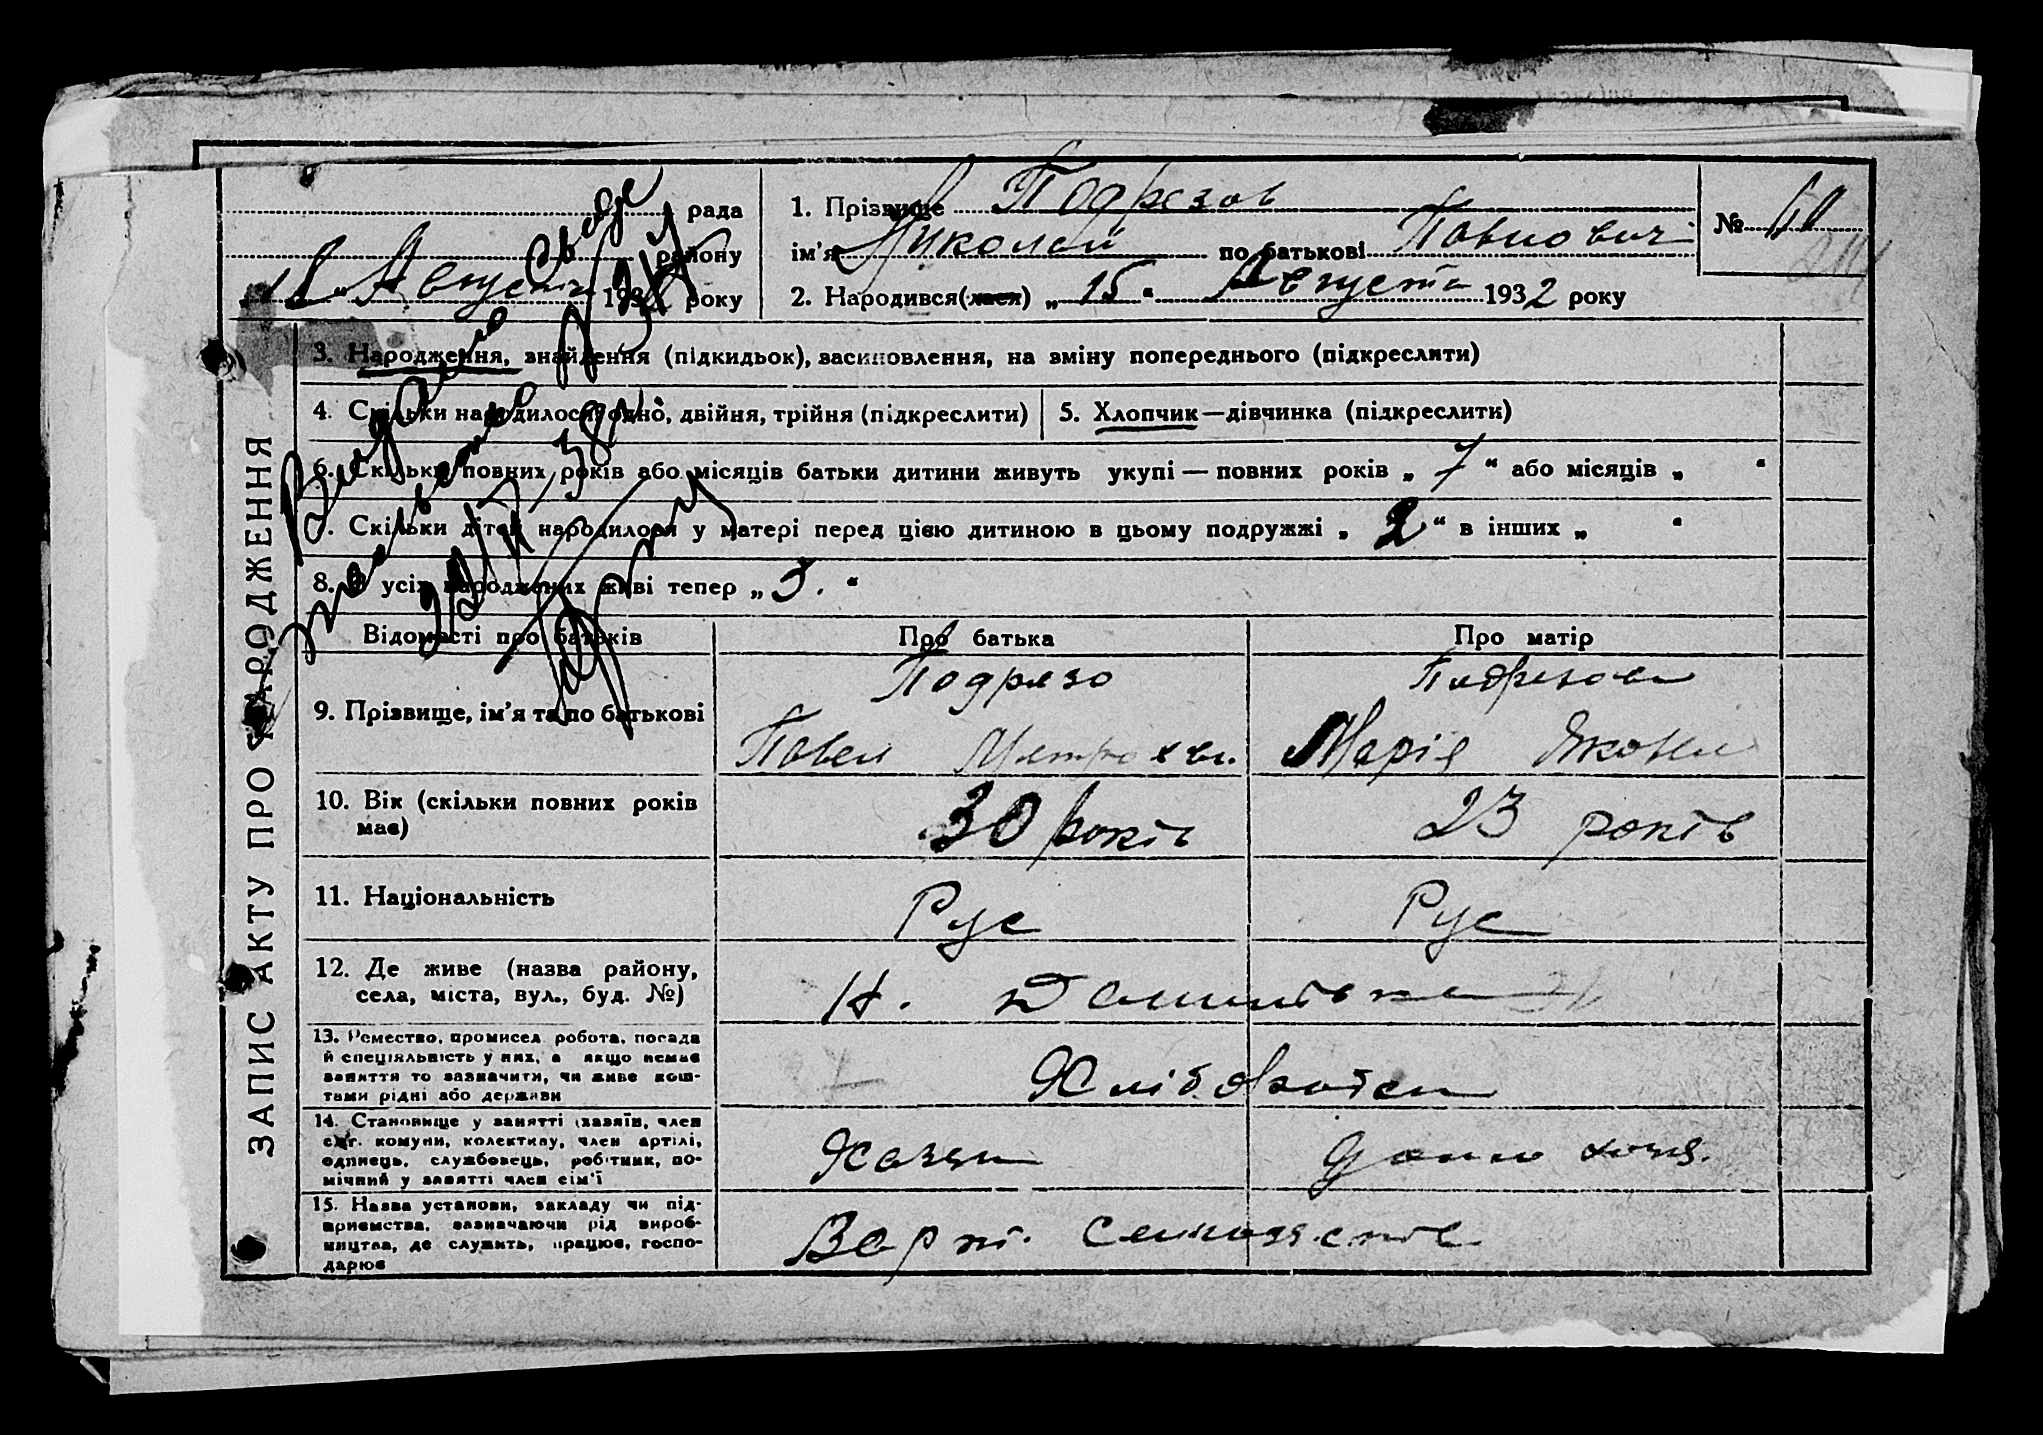 рада
району
18 Августа 1932 року
1. Прізвище Подрезов
ім'я Николай по батькові Павлович
2. Народився(лася) „ 15 “ Августа 1932 року
№ 60
Видано
3. Народження, знайдення (підкидьок), засиновлення, на зміну попереднього (підкреслити)
4. Скільки народилося: одно, двійня, трійня (підкреслити)
5. Хлопчик—дівчинка (підкреслити)
6. Скільки повних років або місяців батьки дитини живуть укупі — повних років „ 7 “ або місяців „ “
7. Скільки дітей народилося у матері перед цією дитиною в цьому подружжі „ 2 “ в інших „ “
8. З усіх народжених живі тепер „ 3. “
ЗАПИС АКТУ ПРО НАРОДЖЕННЯ
Відомості про батьків
Про батька
Про матір
9. Прізвище, ім'я та по батькові
Подрезо
Павел
Подрезова
Марія Яковл
10. Вік (скільки повних років має)
30 років
23 років
11. Національність
Рус
Рус
12. Де живе (назва району,
села, міста, вул., буд. №)
Н.
13. Ремество, промисел, робота, посада
й спеціяльність у них, а якщо немає
заняття то зазначити, чи живе кош-
тами рідні або держави
Хлібороби
14. Становище у занятті (хазяїн, член
с.-г. комуни, колективу, член артілі,
одинець, службовець, робітник, по-
мічний у занятті член сім'ї
Хазяин
Домо хозя.
15. Назва установи, закладу чи під-
приємства, зазначаючи рід вироб-
ництва, де служить, працює, госпо-
дарює